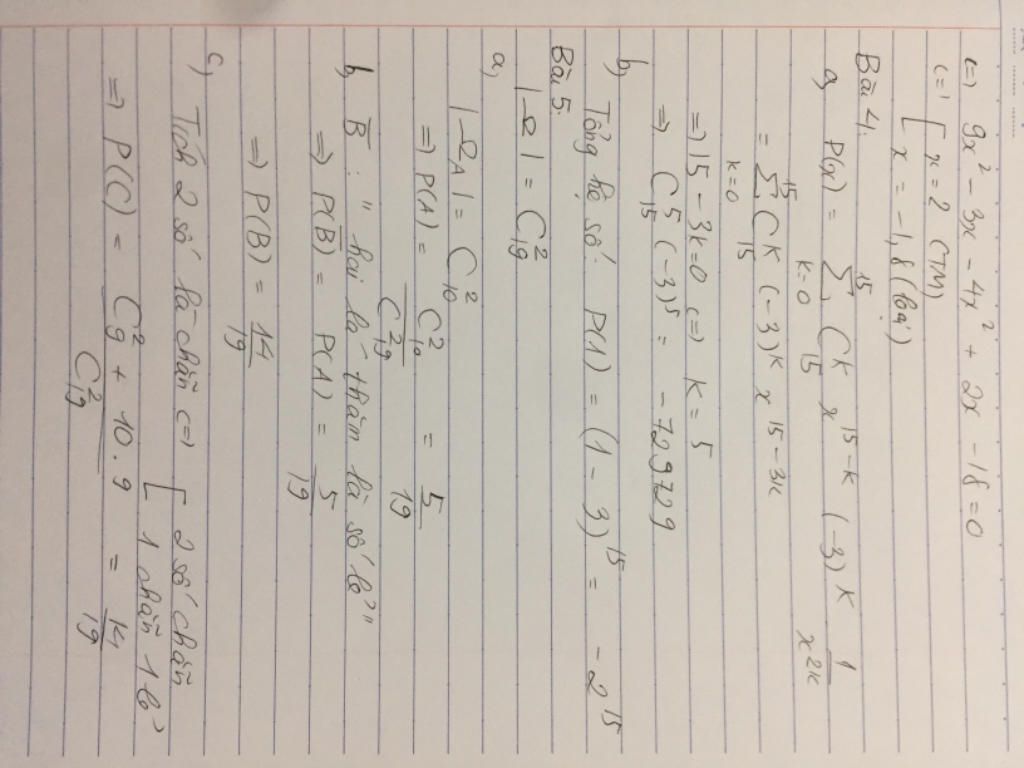 <=> 9x² - 3x - 4x² + 2x - 18 = 0
<=> [ x = 2 (TM)
x = -1,8 (loại)
Bài 4.
a, P(x) = Σ_{k=0}^{15} C_{15}^k x^{15-k} (-3)^k 1/x^{2k}
= Σ_{k=0}^{15} C_{15}^k (-3)^k x^{15-3k}
=> 15 - 3k = 0 <=> k = 5
=> C_{15}^5 (-3)^5 = -729729
b, Tổng hệ số: P(1) = (1 - 3)^{15} = -2^{15}
Bài 5.
a, |Ω| = C_{19}^2
|Ω_A| = C_{10}^2
=> P(A) = C_{10}^2 / C_{19}^2 = 5/19
b, B̄ : " hai lá thăm là số lẻ"
=> P(B̄) = P(A) = 5/19
=> P(B) = 14/19
c, Tích 2 số là chẵn <=> [ 2 số chẵn
1 chẵn 1 lẻ
=> P(C) = (C_9^2 + 10.9) / C_{19}^2 = 14/19